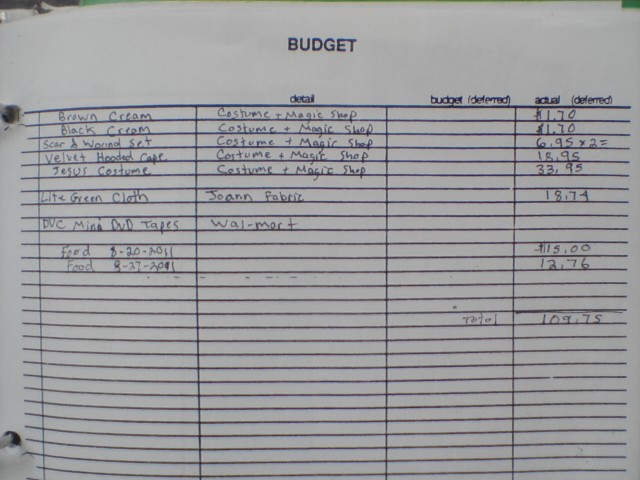 BUDGET
detail budget (deferred) actual (deferred)
Brown Cream Costume + Magic Shop $1.70
Black Cream Costume + Magic Shop $1.70
Scar & Wound Set Costume + Magic Shop 6.95 x 2 =
Velvet Hooded Cape Costume + Magic Shop 18.95
Jesus Costume Costume + Magic Shop 33.95
Lite Green Cloth Joann Fabric 18.74
DVC Mini DVD Tapes Wal-mart
Food 8-20-2011 $15.00
Food 8-27-2011 12.76
Total 109.75